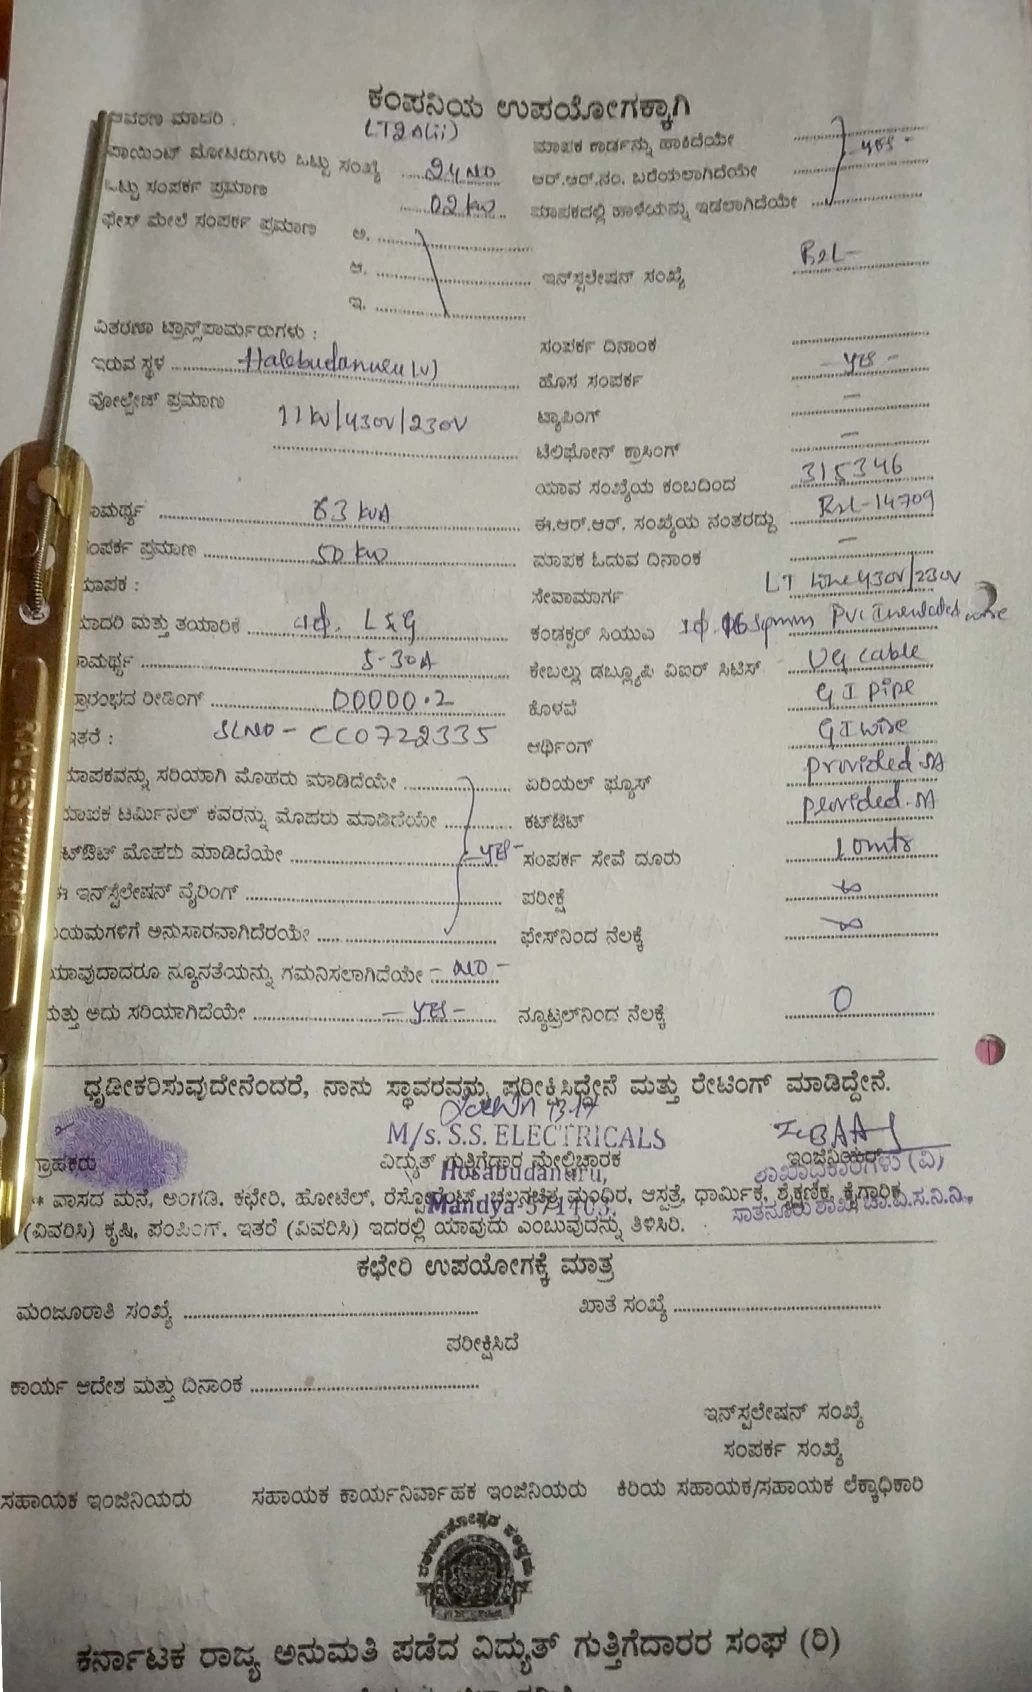 ಕಂಪನಿಯ ಉಪಯೋಗಕ್ಕಾಗಿ
ಆವರಣ ಮಾದರಿ : LT2a(ii) ಮಾಪಕ ಕಾರ್ಡನ್ನು ಹಾಕಿದೆಯೇ
ಪಾಯಿಂಟ್ ಮೋಟರುಗಳು ಒಟ್ಟು ಸಂಖ್ಯೆ 24 NO ಆರ್.ಆರ್.ನಂ. ಬರೆಯಲಾಗಿದೆಯೇ - yes -
ಒಟ್ಟು ಸಂಪರ್ಕ ಪ್ರಮಾಣ 02 KW ಮಾಪಕದಲ್ಲಿ ಹಾಳೆಯನ್ನು ಇಡಲಾಗಿದೆಯೇ
ಫೇಸ್ ಮೇಲೆ ಸಂಪರ್ಕ ಪ್ರಮಾಣ ಅ.
ಆ. ಇನ್‌ಸ್ಟಲೇಷನ್ ಸಂಖ್ಯೆ
ಇ.
ವಿತರಣಾ ಟ್ರಾನ್ಸ್‌ಫಾರ್ಮರುಗಳು : ಸಂಪರ್ಕ ದಿನಾಂಕ
ಇರುವ ಸ್ಥಳ ಹೊಸ ಸಂಪರ್ಕ - yes -
ವೋಲ್ಟೇಜ್ ಪ್ರಮಾಣ 11KV/430V/230V ಟ್ಯಾಪಿಂಗ್ -
ಟೆಲಿಫೋನ್ ಕ್ರಾಸಿಂಗ್ -
ಯಾವ ಸಂಖ್ಯೆಯ ಕಂಬದಿಂದ 315346
ಸಾಮರ್ಥ್ಯ 63 KVA ಈ.ಆರ್.ಆರ್. ಸಂಖ್ಯೆಯ ನಂತರದ್ದು -14709
ಸಂಪರ್ಕ ಪ್ರಮಾಣ 50 KW ಮಾಪಕ ಓದುವ ದಿನಾಂಕ -
ಮಾಪಕ : ಸೇವಾಮಾರ್ಗ LT line 430V/230V
ಮಾದರಿ ಮತ್ತು ತಯಾರಿಕೆ 1φ. L&G ಕಂಡಕ್ಟರ್ ಸಿಯುವಿ 1φ. 16 Sqmm PVC wire
ಸಾಮರ್ಥ್ಯ 5-30A ಕೇಬಲ್ಲು ಡಬ್ಲ್ಯೂಪಿ ವಿಐರ್ ಸಿಟಿಸ್ UG cable
ಪ್ರಾರಂಭದ ರೀಡಿಂಗ್ 00000.2 ಕೊಳವೆ GI pipe
ಇತರೆ : SLNO - CC0722335 ಆರ್ಥಿಂಗ್ GI wire
ಮಾಪಕವನ್ನು ಸರಿಯಾಗಿ ಮೊಹರು ಮಾಡಿದೆಯೇ ಏರಿಯಲ್ ಫ್ಯೂಸ್ provided
ಮಾಪಕ ಟರ್ಮಿನಲ್ ಕವರನ್ನು ಮೊಹರು ಮಾಡಿದೆಯೇ ಕಟ್‌ಔಟ್ provided
ಕಟ್‌ಔಟ್ ಮೊಹರು ಮಾಡಿದೆಯೇ - yes - ಸಂಪರ್ಕ ಸೇವೆ ದೂರು 10mts
ಈ ಇನ್‌ಸ್ಟಲೇಷನ್ ವೈರಿಂಗ್ ಪರೀಕ್ಷೆ ∞
ನಿಯಮಗಳಿಗೆ ಅನುಸಾರವಾಗಿದೆರಯೇ ಫೇಸ್‌ನಿಂದ ನೆಲಕ್ಕೆ ∞
ಯಾವುದಾದರೂ ನ್ಯೂನತೆಯನ್ನು ಗಮನಿಸಲಾಗಿದೆಯೇ - NO -
ಮತ್ತು ಅದು ಸರಿಯಾಗಿದೆಯೇ - yes - ನ್ಯೂಟ್ರಲ್‌ನಿಂದ ನೆಲಕ್ಕೆ 0
ಧೃಡೀಕರಿಸುವುದೇನೆಂದರೆ, ನಾನು ಸ್ಥಾವರವನ್ನು ಪರೀಕ್ಷಿಸಿದ್ದೇನೆ ಮತ್ತು ರೇಟಿಂಗ್ ಮಾಡಿದ್ದೇನೆ.
M/s. S.S. ELECTRICALS
ಗ್ರಾಹಕರು ವಿದ್ಯುತ್ ಗುತ್ತಿಗೆದಾರ ಮೇಲ್ವಿಚಾರಕ ಇಂಜಿನಿಯರ್
Hosabudanuru,
ಶಾಖಾಧಿಕಾರಿಗಳು (ವಿ)
** ವಾಸದ ಮನೆ, ಅಂಗಡಿ, ಕಛೇರಿ, ಹೋಟೆಲ್, ರೆಸ್ಟೋರೆಂಟ್, ಚಲನಚಿತ್ರ ಮಂಧಿರ, ಆಸ್ಪತ್ರೆ, ಧಾರ್ಮಿಕ, ಶೈಕ್ಷಣಿಕ, ಕೈಗಾರಿಕ
Mandya-571403.
(ವಿವರಿಸಿ) ಕೃಷಿ, ಪಂಪಿಂಗ್, ಇತರೆ (ವಿವರಿಸಿ) ಇದರಲ್ಲಿ ಯಾವುದು ಎಂಬುವುದನ್ನು ತಿಳಿಸಿರಿ.
ಕಛೇರಿ ಉಪಯೋಗಕ್ಕೆ ಮಾತ್ರ
ಮಂಜೂರಾತಿ ಸಂಖ್ಯೆ ಖಾತೆ ಸಂಖ್ಯೆ
ಪರೀಕ್ಷಿಸಿದೆ
ಕಾರ್ಯ ಆದೇಶ ಮತ್ತು ದಿನಾಂಕ
ಇನ್‌ಸ್ಟಲೇಷನ್ ಸಂಖ್ಯೆ
ಸಂಪರ್ಕ ಸಂಖ್ಯೆ
ಸಹಾಯಕ ಇಂಜಿನಿಯರು ಸಹಾಯಕ ಕಾರ್ಯನಿರ್ವಾಹಕ ಇಂಜಿನಿಯರು ಕಿರಿಯ ಸಹಾಯಕ/ಸಹಾಯಕ ಲೆಕ್ಕಾಧಿಕಾರಿ
ಕರ್ನಾಟಕ ರಾಜ್ಯ ಅನುಮತಿ ಪಡೆದ ವಿದ್ಯುತ್ ಗುತ್ತಿಗೆದಾರರ ಸಂಘ (ರಿ)